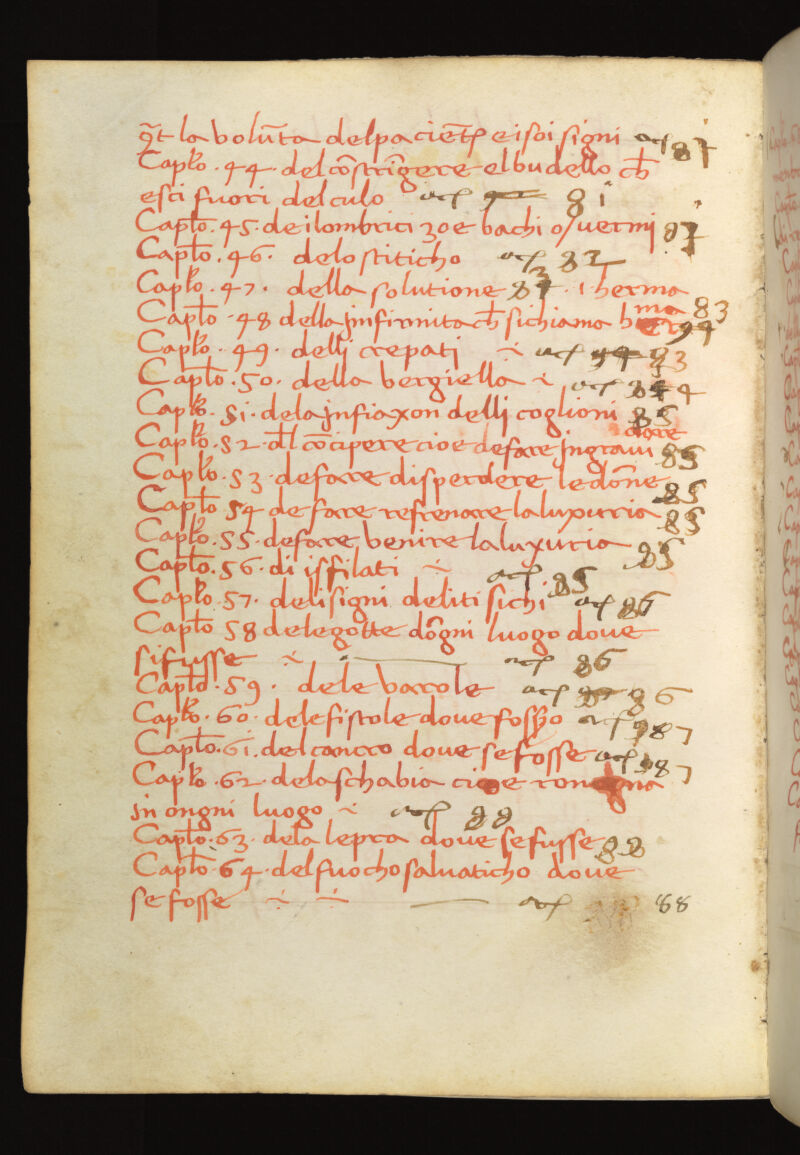 q̃t la volũta del paciẽt e i soi signi ac 81
Caplo . 44 . del cõstrĩgere el budello ch
esci fuori del culo ac 81
Caplo . 45 . de i lombrici zoe bachi o/vermi 82
Caplo . 46 . de lo stiticho ac 82
Caplo . 47 . della solutione 83 . i herma
Caplo . 48 della jnfirmita ch si chiama 83
Caplo . 49 . delli crepati ac 93
Caplo . 50 . della vergiella ac 84
Caplo . 51 . de la jnfiaxon delli coglioni 85
Caplo . 52 . dl cõcipere cioe de fare jngravidare 85
Caplo . 53 . de fare disperdere le dõne 85
Caplo 54 de fare refrenare la luxuria 85
Caplo . 55 . de fare venire la luxuria 85
Caplo . 56 . di isfilati ac 85
Caplo . 57 . deli signi deli tisichi ac 86
Caplo 58 de le gotte dõgni luogo dove
si fusse ac 86
Caplo . 59 . de le varole ac 86
Caplo . 60 . de le fistole dove fosso ac 87
Caplo . 61 . del cancro dove se fosse ac 87
Caplo . 62 . de la schabia cioe rongna
jn ongni luogo ac 88
Caplo . 63 . de la lepra dove se fusse 88
Caplo 64 . del fuocho salvaticho dove
se fosse ac 88